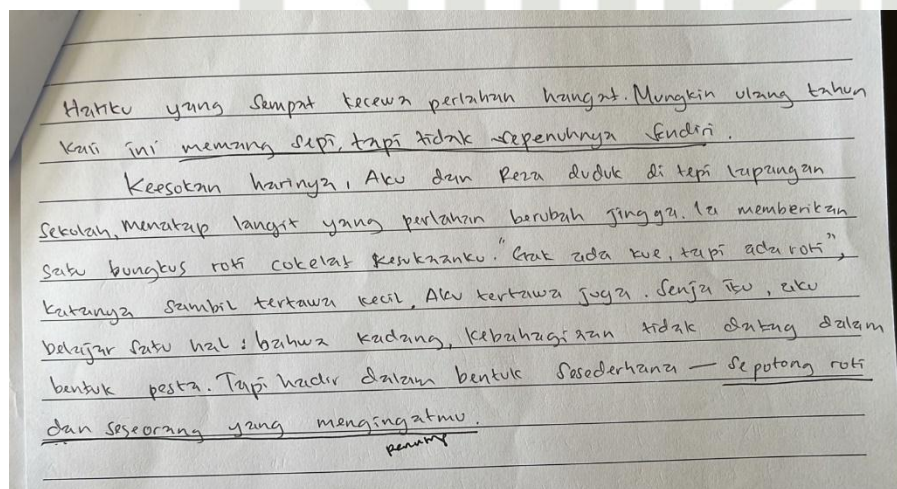 Hatiku yang sempat kecewa perlahan hangat. Mungkin ulang tahun
kali ini memang sepi, tapi tidak sepenuhnya sendiri.
Keesokan harinya, Aku dan Reza duduk di tepi lapangan
sekolah, menatap langit yang perlahan berubah jingga. Ia memberikan
satu bungkus roti cokelat kesukaanku. "Gak ada kue, tapi ada roti",
katanya sambil tertawa kecil, Aku tertawa juga. Senja itu, aku
belajar satu hal : bahwa kadang, kebahagiaan tidak datang dalam
bentuk pesta. Tapi hadir dalam bentuk sesederhana — sepotong roti
dan seseorang yang mengingatmu.